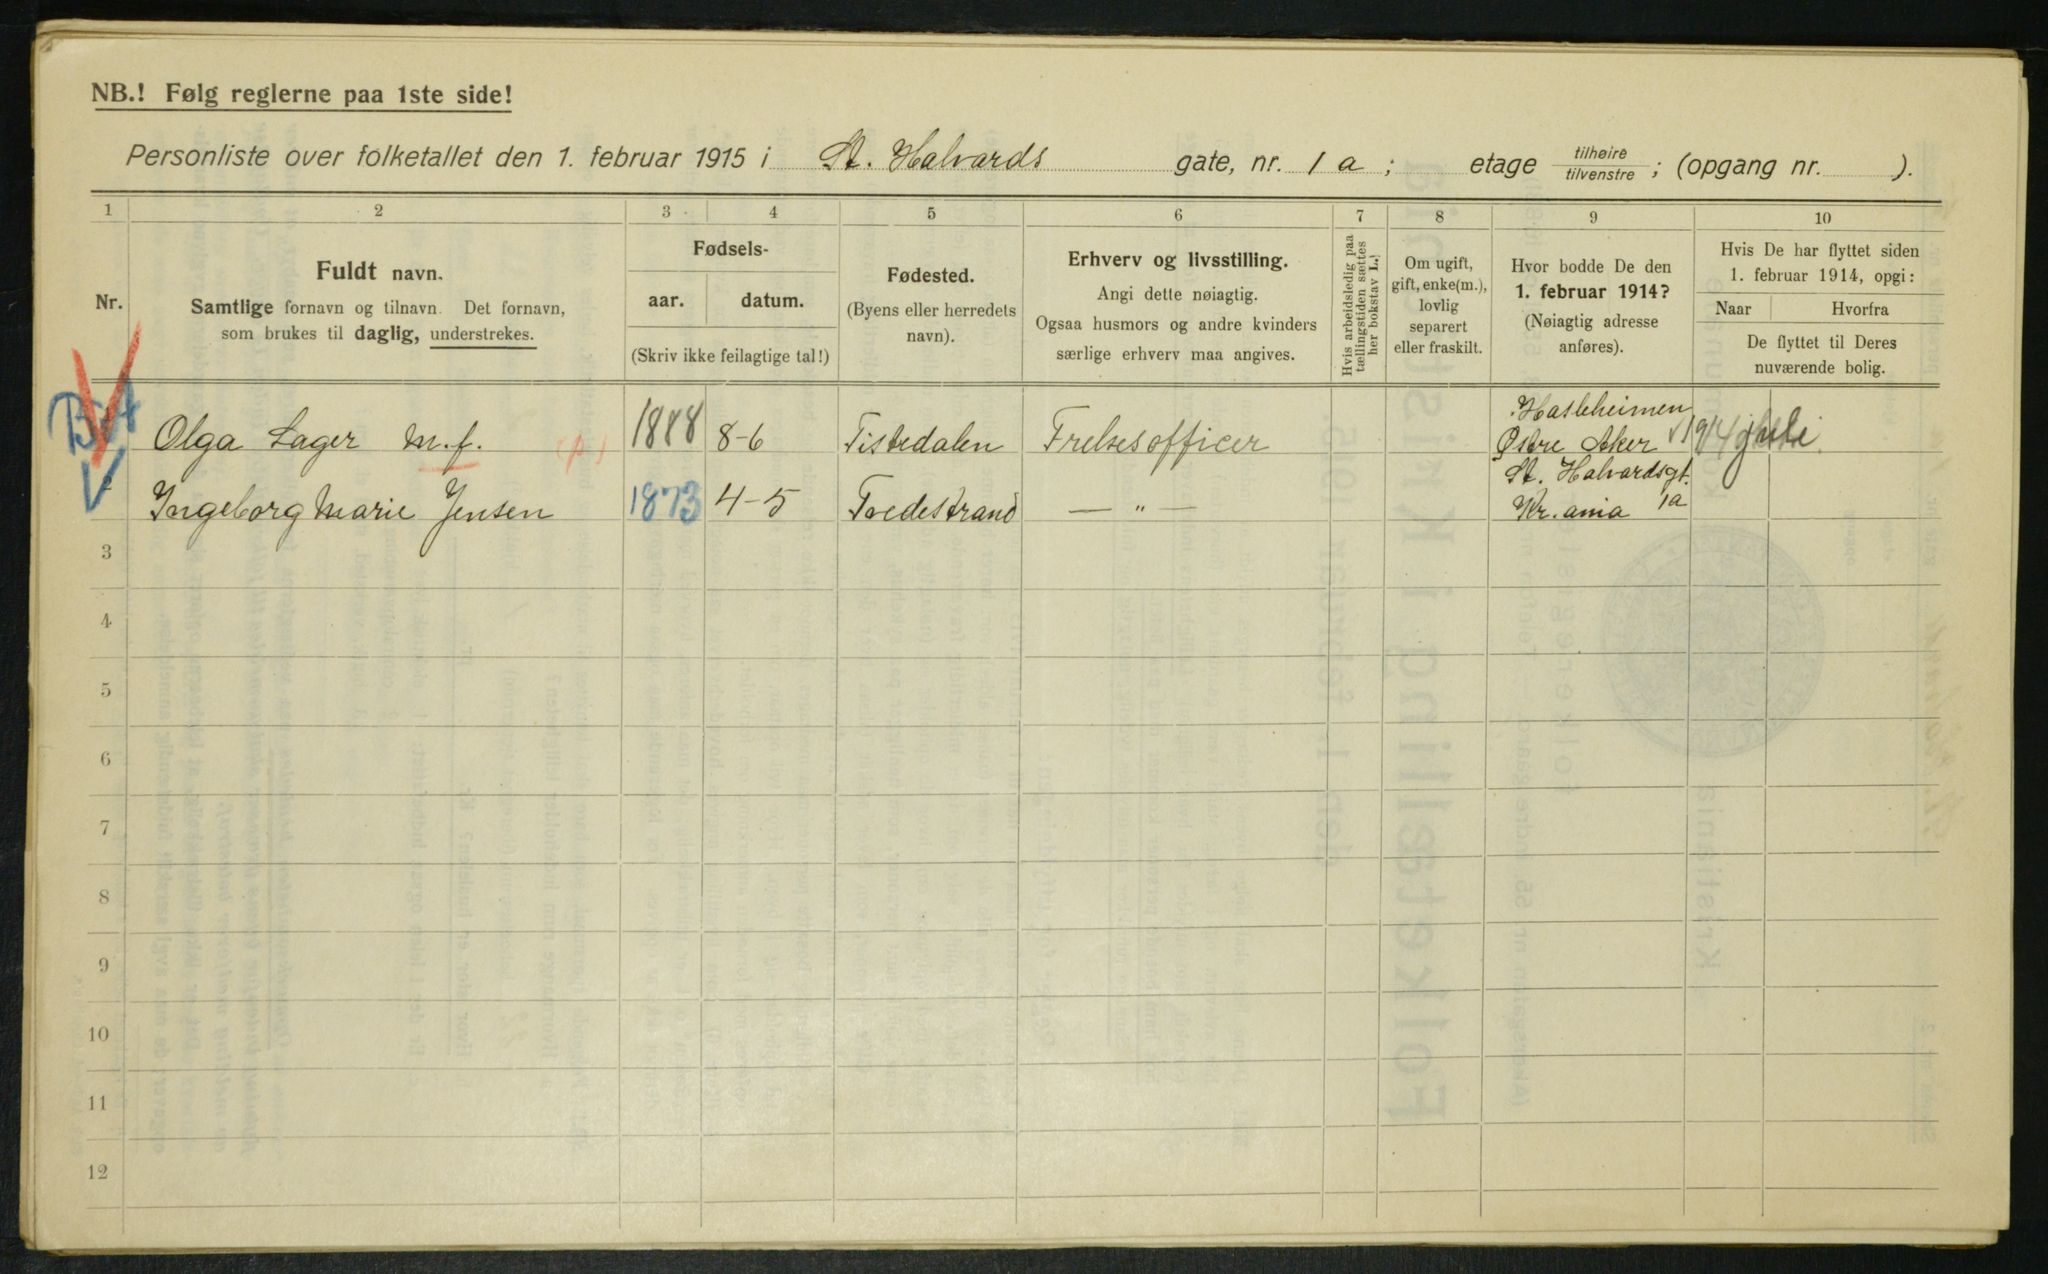 NB.! Følg reglerne paa 1ste side!
Personliste over folketallet den 1. februar 1915 i St. Halvards gate, nr. 1 a; etage tilhøire / tilvenstre; (opgang nr. ).
1 2 3 4 5 6 7 8 9 10
Nr.
Fuldt navn.
Samtlige fornavn og tilnavn. Det fornavn,
som brukes til daglig, understrekes.
Fødsels-
aar. datum.
(Skriv ikke feilagtige tal!)
Fødested.
(Byens eller herredets
navn).
Erhverv og livsstilling.
Angi dette nøiagtig.
Ogsaa husmors og andre kvinders
særlige erhverv maa angives.
Hvis arbeidsledig paa
tællingstiden sættes
her bokstav L.)
Om ugift,
gift, enke(m.),
lovlig
separert
eller fraskilt.
Hvor bodde De den
1. februar 1914?
(Nøiagtig adresse
anføres).
Hvis De har flyttet siden
1. februar 1914, opgi:
Naar Hvorfra
De flyttet til Deres
nuværende bolig.
Olga Lager m.f. (p) 1888 8-6 Tistedalen Frelsesofficer Hasleheimen
Østre Aker 1914 juli
Ingeborg Marie Jensen 1873 4-5 Tvedestrand — " — St. Halvardsgt.
Kr.ania 1a
3
4
5
6
7
8
9
10
11
12